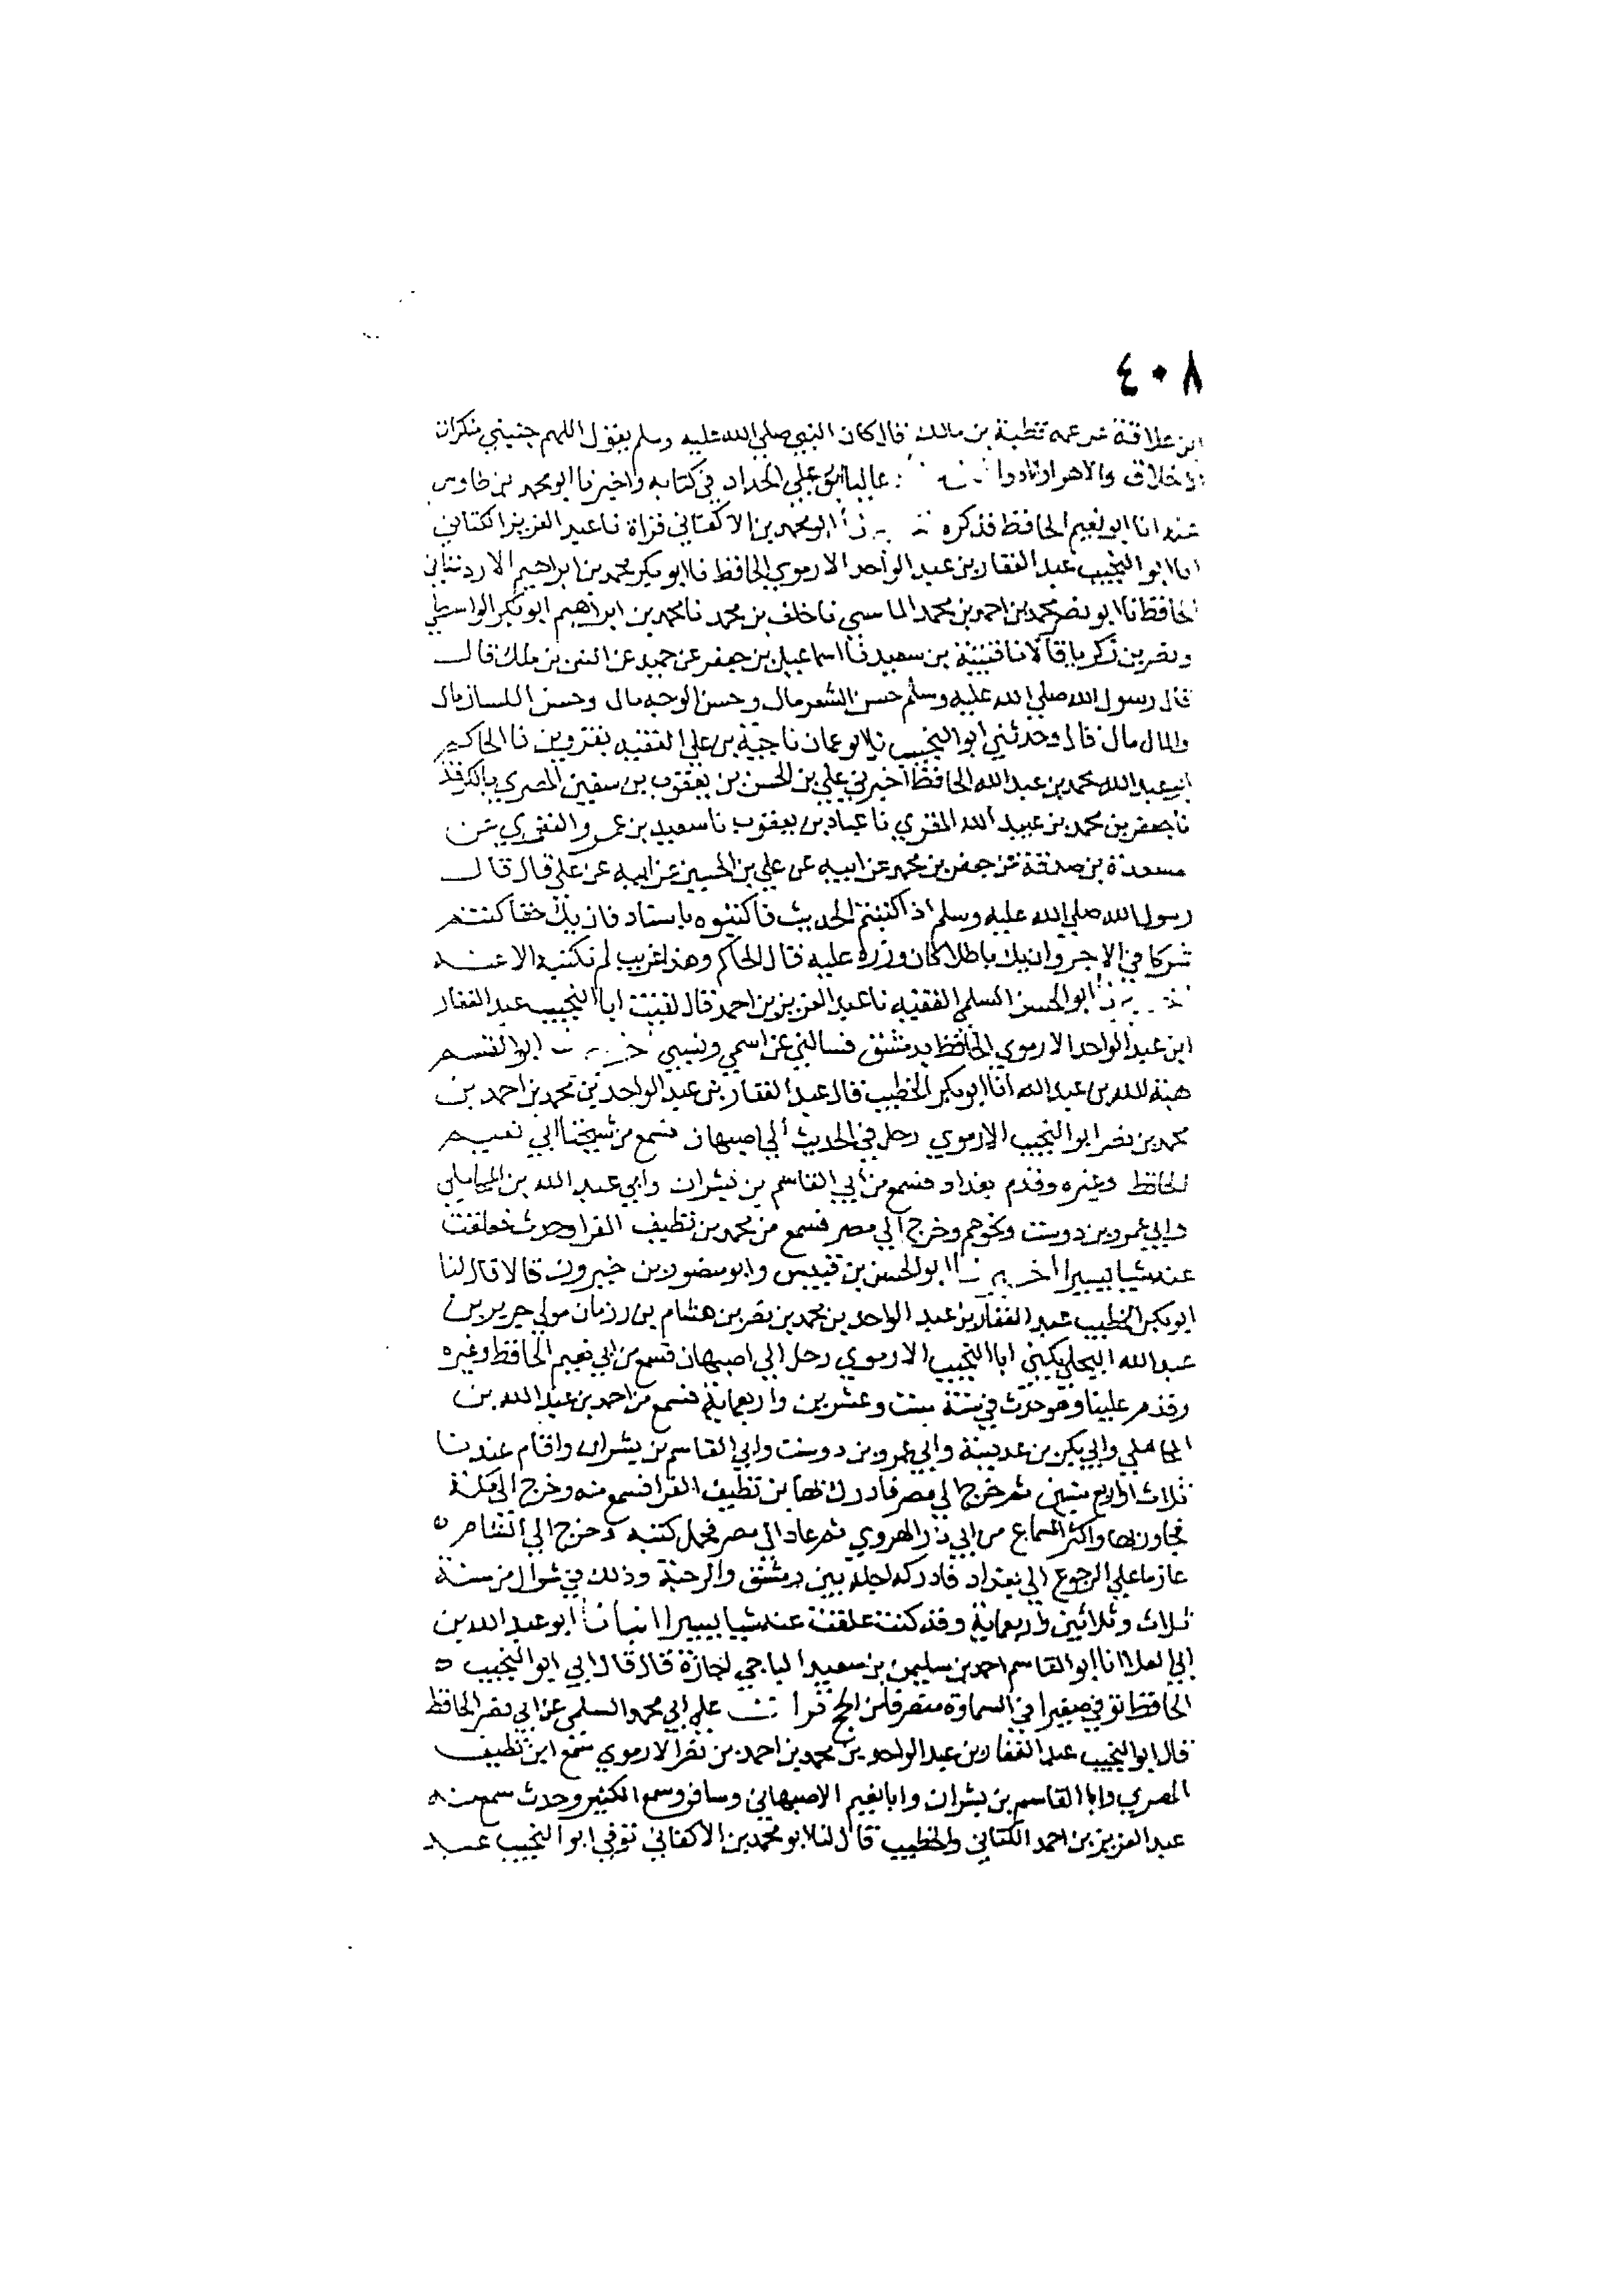 ٤٠٨
ابن علاقة عن عمه قطبة بن مالك قال كان النبي صلي الله عليه وسلم يقول اللهم جنبني منكرات
الاخلاق والاهوا والادوا عاليا ابو علي الحداد في كتابه واخبرنا ابو محمد بن طاوس
عنه انا ابو نعيم الحافظ فذكره ابو محمد بن الاكفاني قراة نا عبد العزيز الكتاني
انا ابو النجيب عبد الغفار بن عبد الواحد الارموي الحافظ نا ابو بكر محمد بن ابراهيم الاردستاني
الحافظ نا ابو نصر محمد بن احمد بن محمد نا خلف بن محمد نا محمد بن ابراهيم ابو بكر الواسطي
ونصر بن زكريا قالا نا قتيبة بن سعيد نا اسماعيل بن جعفر عن حميد عن انس بن ملك قال
قال رسول الله صلي الله عليه وسلم حسن الشعر مال وحسن الوجه مال وحسن اللسان مال
والمال مال قال وحدثني ابو النجيب نا ابو عمان ناجية بن علي الفقيه بقزوين نا الحاكم
ابو عبد الله محمد بن عبد الله الحافظ اخبرني علي بن الحسن بن يعقوب بن سفين المصري بالكوفة
نا جعفر بن محمد بن عبيد الله المقري نا عباد بن يعقوب نا سعيد بن عمرو العنقزي عن
مسعدة بن صدقة عن جعفر بن محمد عن ابيه عن علي بن الحسين عن ابيه عن علي قال قال
رسول الله صلي الله عليه وسلم اذا كتبتم الحديث فاكتبوه باسناد فان يك حقا كنتم
شركا في الاجر وان يك باطلا كان وزره عليه قال الحاكم وهذا غريب لم نكتبه الا عنه
ابو الحسن السلمي الفقيه نا عبد العزيز بن احمد قال لقيت ابا النجيب عبد الغفار
ابن عبد الواحد الارموي الحافظ بدمشق فسالني عن اسمي ونسبي ابو القسم
هبة الله بن عبد الله انا ابو بكر الخطيب قال عبد الغفار بن عبد الواحد بن محمد بن احمد بن
محمد بن نصر ابو النجيب الارموي رحل في الحديث الي اصبهان فسمع من شيخنا ابي نعيم
الحافظ وغيره وقدم بغداد فسمع من ابي القاسم بن بشران وابي عبد الله بن المحاملي
وابي عمرو بن دوست ونحوهم وخرج الي مصر فسمع من محمد بن نظيف الفرا وحدث فعلقت
عنه شيا يسيرا ابو الحسن بن قبيس وابو منصور بن خيرون قالا قال لنا
ابو بكر الخطيب عبد الغفار بن عبد الواحد بن محمد بن نصر بن هشام بن رزمان مولي جرير بن
عبد الله البجلي يكني ابا النجيب الارموي رحل الي اصبهان فسمع من ابي نعيم الحافظ وغيره
وقدم علينا وهو حدث في سنة ست وعشرين واربعماية فسمع من احمد بن عبد الله بن
المحاملي وابي بكر بن عديسة وابي عمرو بن دوست وابي القاسم بن بشران واقام عندنا
ثلاث او اربع سنين ثم خرج الي مصر فادرك بها بن نظيف الفرا فسمع منه وخرج الي مكة
فجاور بها واكثر السماع من ابي ذر الهروي ثم عاد الي مصر فحمل كتبه وخرج الي الشام
عازما علي الرجوع الي بغداد فادركه اجله بين دمشق والرحبة وذلك في شوال من سنة
ثلاث وثلاثين واربعماية وقد كنت علقت عنه شيا يسيرا انبانا ابو عبد الله بن
ابي العلا انا ابو القاسم احمد بن سليمن بن سعيد الباجي اجازة قال قال ابي ابو النجيب
الحافظ توفي صغيرا في السماوة منصرفا من الحج قرات علي ابي محمد السلمي عن ابي نصر الحافظ
قال ابو النجيب عبد الغفار بن عبد الواحد بن محمد بن احمد بن نصر الارموي سمع ابن نظيف
المصري وابا القاسم بن بشران وابا نعيم الاصبهاني وسافر وسمع الكثير وحدث سمع منه
عبد العزيز بن احمد الكتاني والخطيب قال لنا ابو محمد بن الاكفاني توفي ابو النجيب عبد